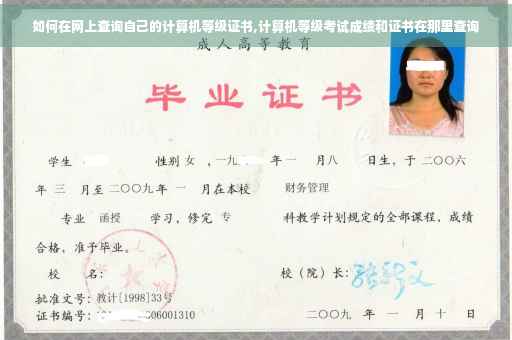 如何在网上查询自己的计算机等级证书,计算机等级考试成绩和证书在那里查询
成人高等教育
毕业证书
学生 性别 女 ，一九 年 一 月 八 日生，于 二〇〇六
年 三 月至 二〇〇九 年 一 月在本校 财务管理
专业 函授 学习，修完 专 科教学计划规定的全部课程，成绩
合格，准予毕业。
校 名： 校（院）长：
批准文号：教计[1998]33号
证书编号： 06001310 二〇〇九 年 一 月 十 日